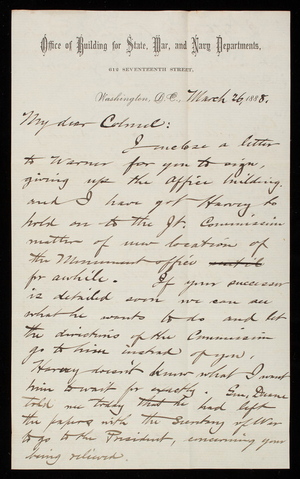 Office of Building for State, War, and Navy Departments,
612 SEVENTEENTH STREET,
Washington, D.C., March 26, 1888.
My dear Colonel:
I enclose a letter
to Warner for you to sign,
giving up the office building.
and I have got Harvey to
hold on to the Jt. Commission
matter of new location of
the Monument office until
for awhile. If your successor
is detailed soon we can see
what he wants to do and let
the directions of the Commission
go to him instead of you.
Harvey doesn't know what I want
him to wait for exactly. Gen. Duane
told me today that he had left
the papers with the Secretary of War
to go to the President, concerning your
being relieved.